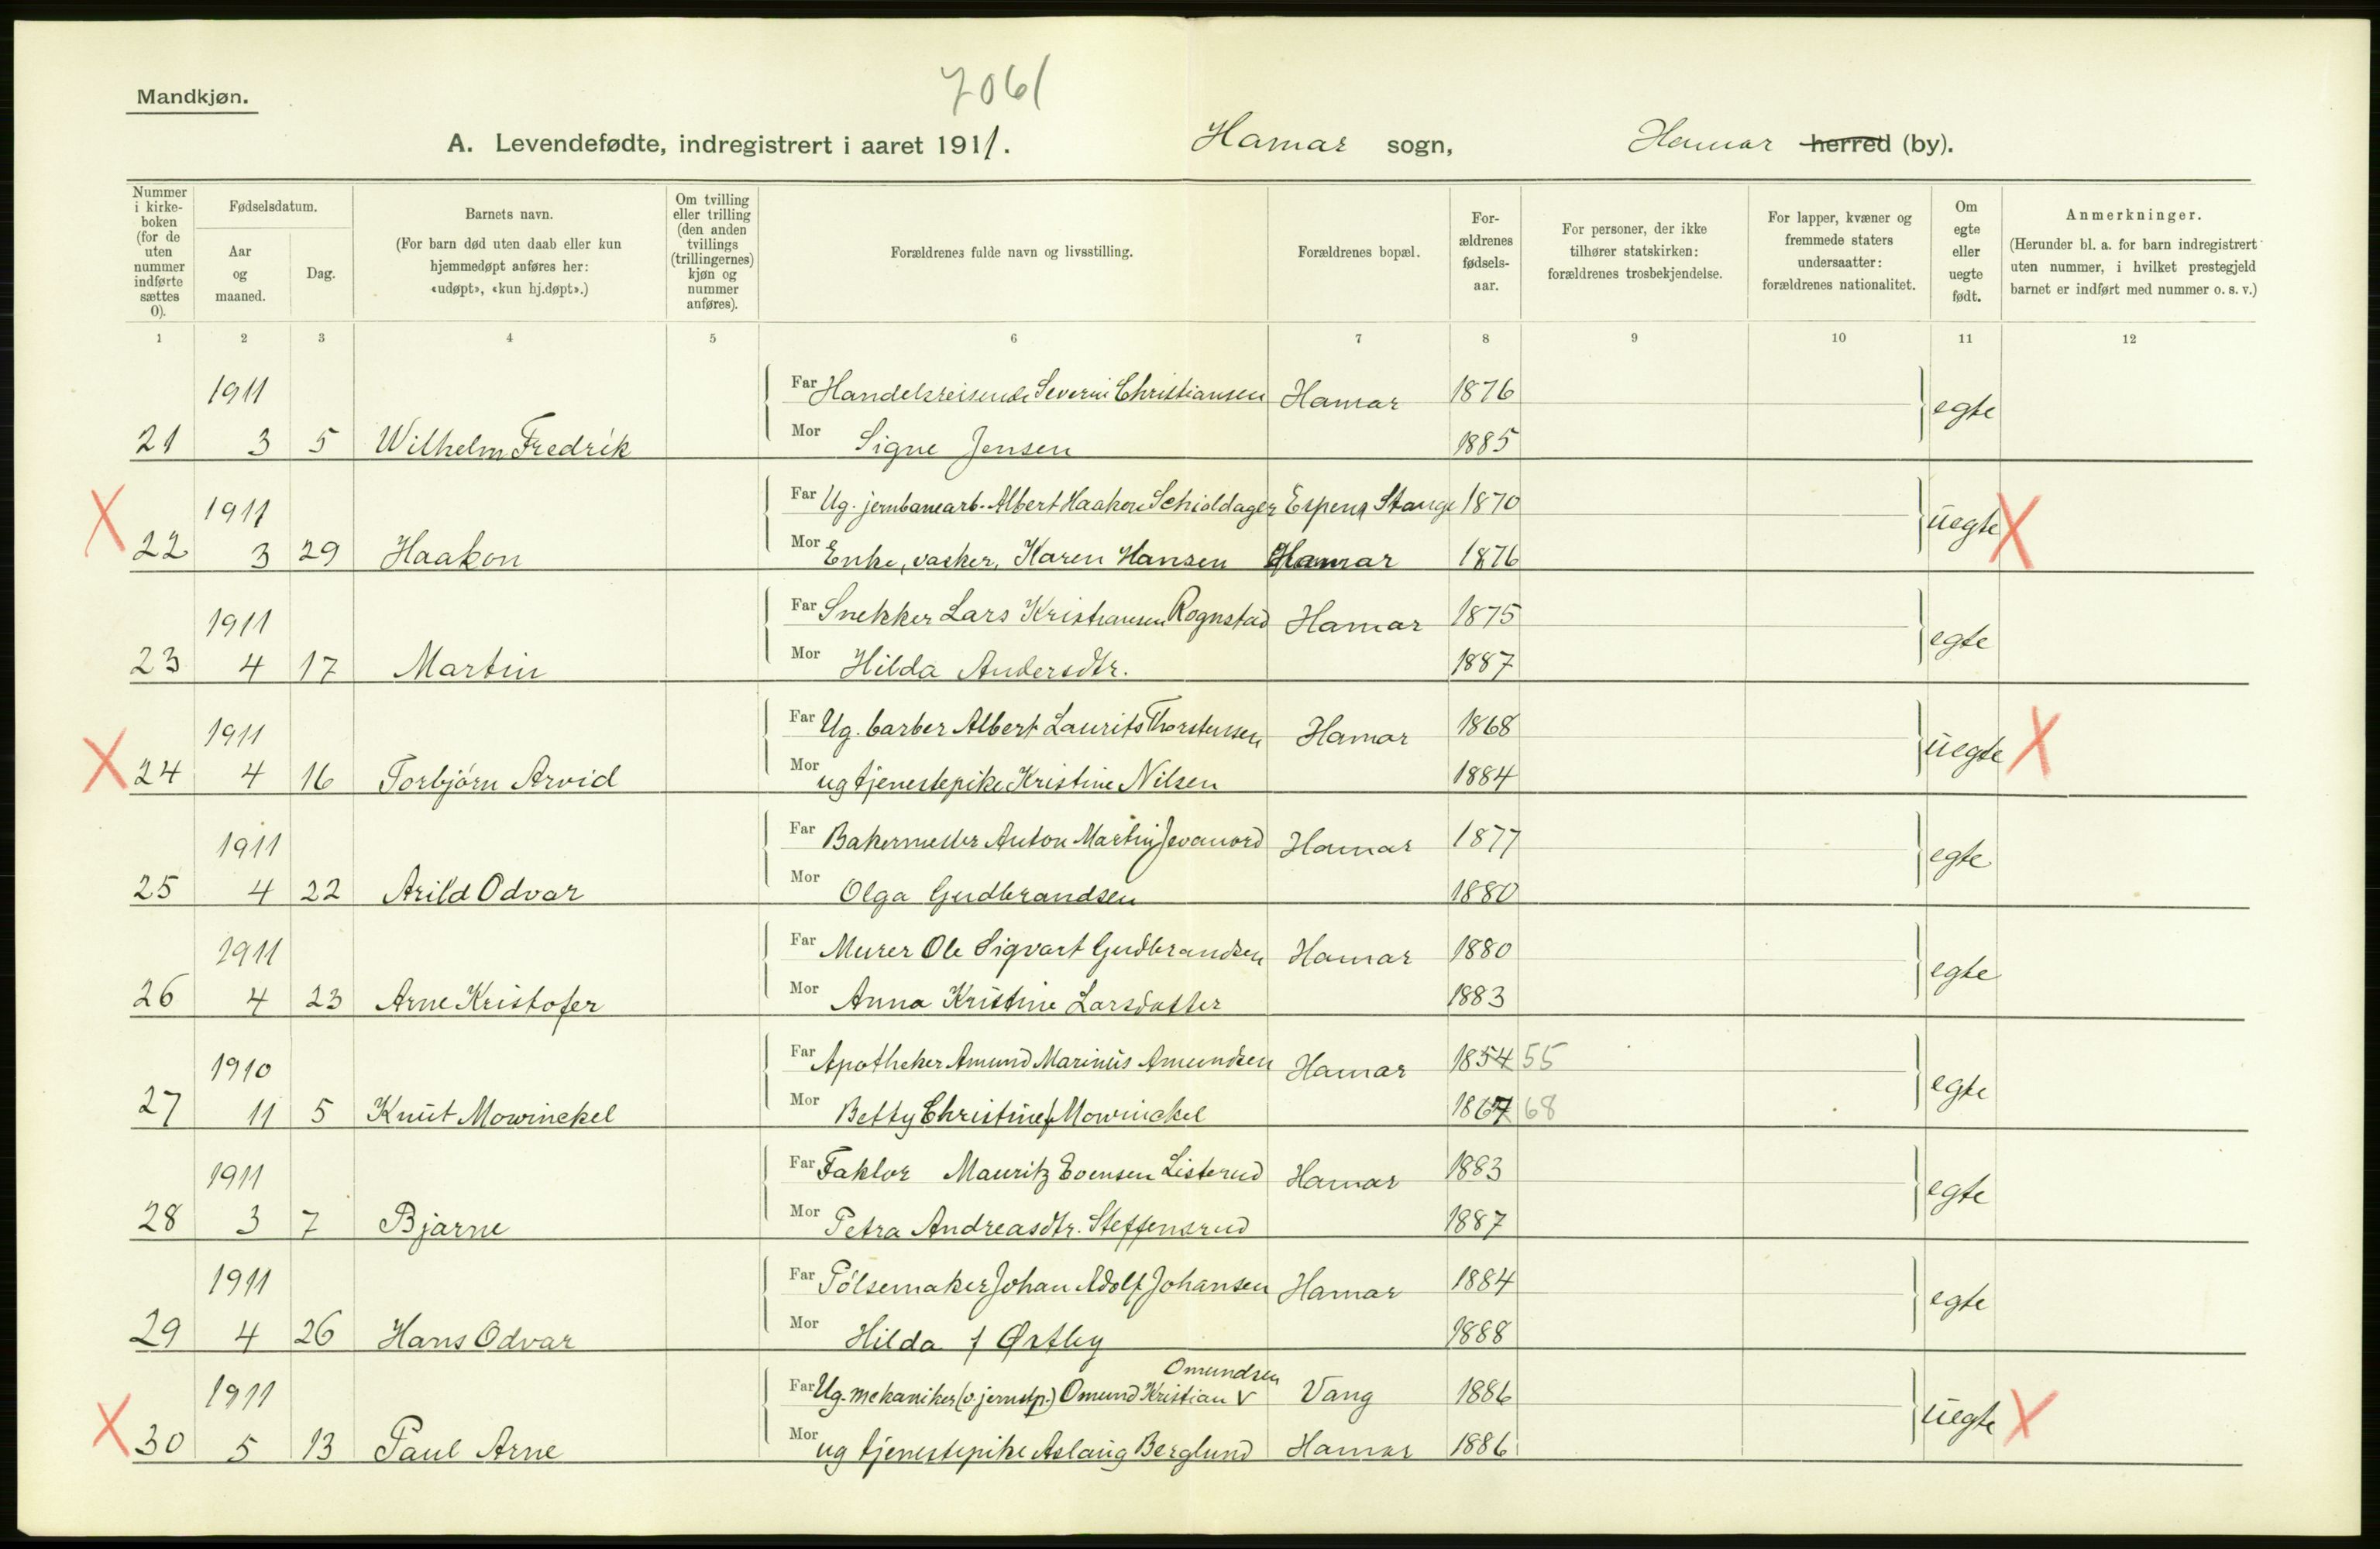 7061
Mandkjøn.
A. Levendefødte, indregistrert i aaret 1911. Hamar sogn, Hamar herred (by).
Nummer i kirkeboken (for de uten nummer indførte sættes 0).
Fødselsdatum.
Aar og maaned.
Dag.
Barnets navn.
(For barn død uten daab eller kun hjemmedøpt anføres her: «udøpt», «kun hj.døpt».)
Om tvilling eller trilling (den anden tvillings (trillingernes) kjøn og nummer anføres).
Forældrenes fulde navn og livsstilling.
Forældrenes bopæl.
Forældrenes fødselsaar.
For personer, der ikke tilhører statskirken: forældrenes trosbekjendelse.
For lapper, kvæner og fremmede staters undersaatter: forældrenes nationalitet.
Om egte eller uegte født.
Anmerkninger.
(Herunder bl. a. for barn indregistrert uten nummer, i hvilket prestegjeld barnet er indført med nummer o. s. v.)
1 2 3 4 5 6 7 8 9 10 11 12
1911 Far Handelsreisende Severin Christiansen Hamar 1876 egte
21 3 5 Wilhelm Fredrik Mor Signe Jensen 1885
X 1911 Far Ug. jernbanearb. Albert Haakon Schioldager Espern Stange 1870 uegte X
22 3 29 Haakon Mor Enke, vasker, Karen Hansen Hamar 1876
1911 Far Snekker Lars Kristiansen Rognstad Hamar 1875 egte
23 4 17 Martin Mor Hilda Andersdtr. 1887
X 1911 Far Ug. barber Albert Laurits Thorstensen Hamar 1868 uegte X
24 4 16 Torbjörn Arvid Mor ug tjenestepike Kristine Nilsen 1884
1911 Far Bakermester Anton Martin Jevanord Hamar 1877 egte
25 4 22 Arild Odvar Mor Olga Gudbrandsen 1880
1911 Far Murer Ole Sigvart Gudbrandsen Hamar 1880 egte
26 4 23 Arne Kristofer Mor Anna Kristine Larsdatter 1883
1910 Far Apotheker Amund Marinus Amundsen Hamar 1854 55 egte
27 11 5 Knut Mowinckel Mor Betty Christine f Mowinckel 1867 68
1911 Far Faktor Mauritz Evensen Listerud Hamar 1883 egte
28 3 7 Bjarne Mor Petra Andreasdtr. Steffensrud 1887
1911 Far Pölsemaker Johan Adolf Johansen Hamar 1884 egte
29 4 26 Hans Odvar Mor Hilda f Østby 1888
Omundsen
X 1911 Far Ug. mekaniker (v. jernstp.) Omund Kristian V Vang 1886 uegte X
30 5 13 Paul Arne Mor ug tjenestepike Aslaug Berglund Hamar 1886